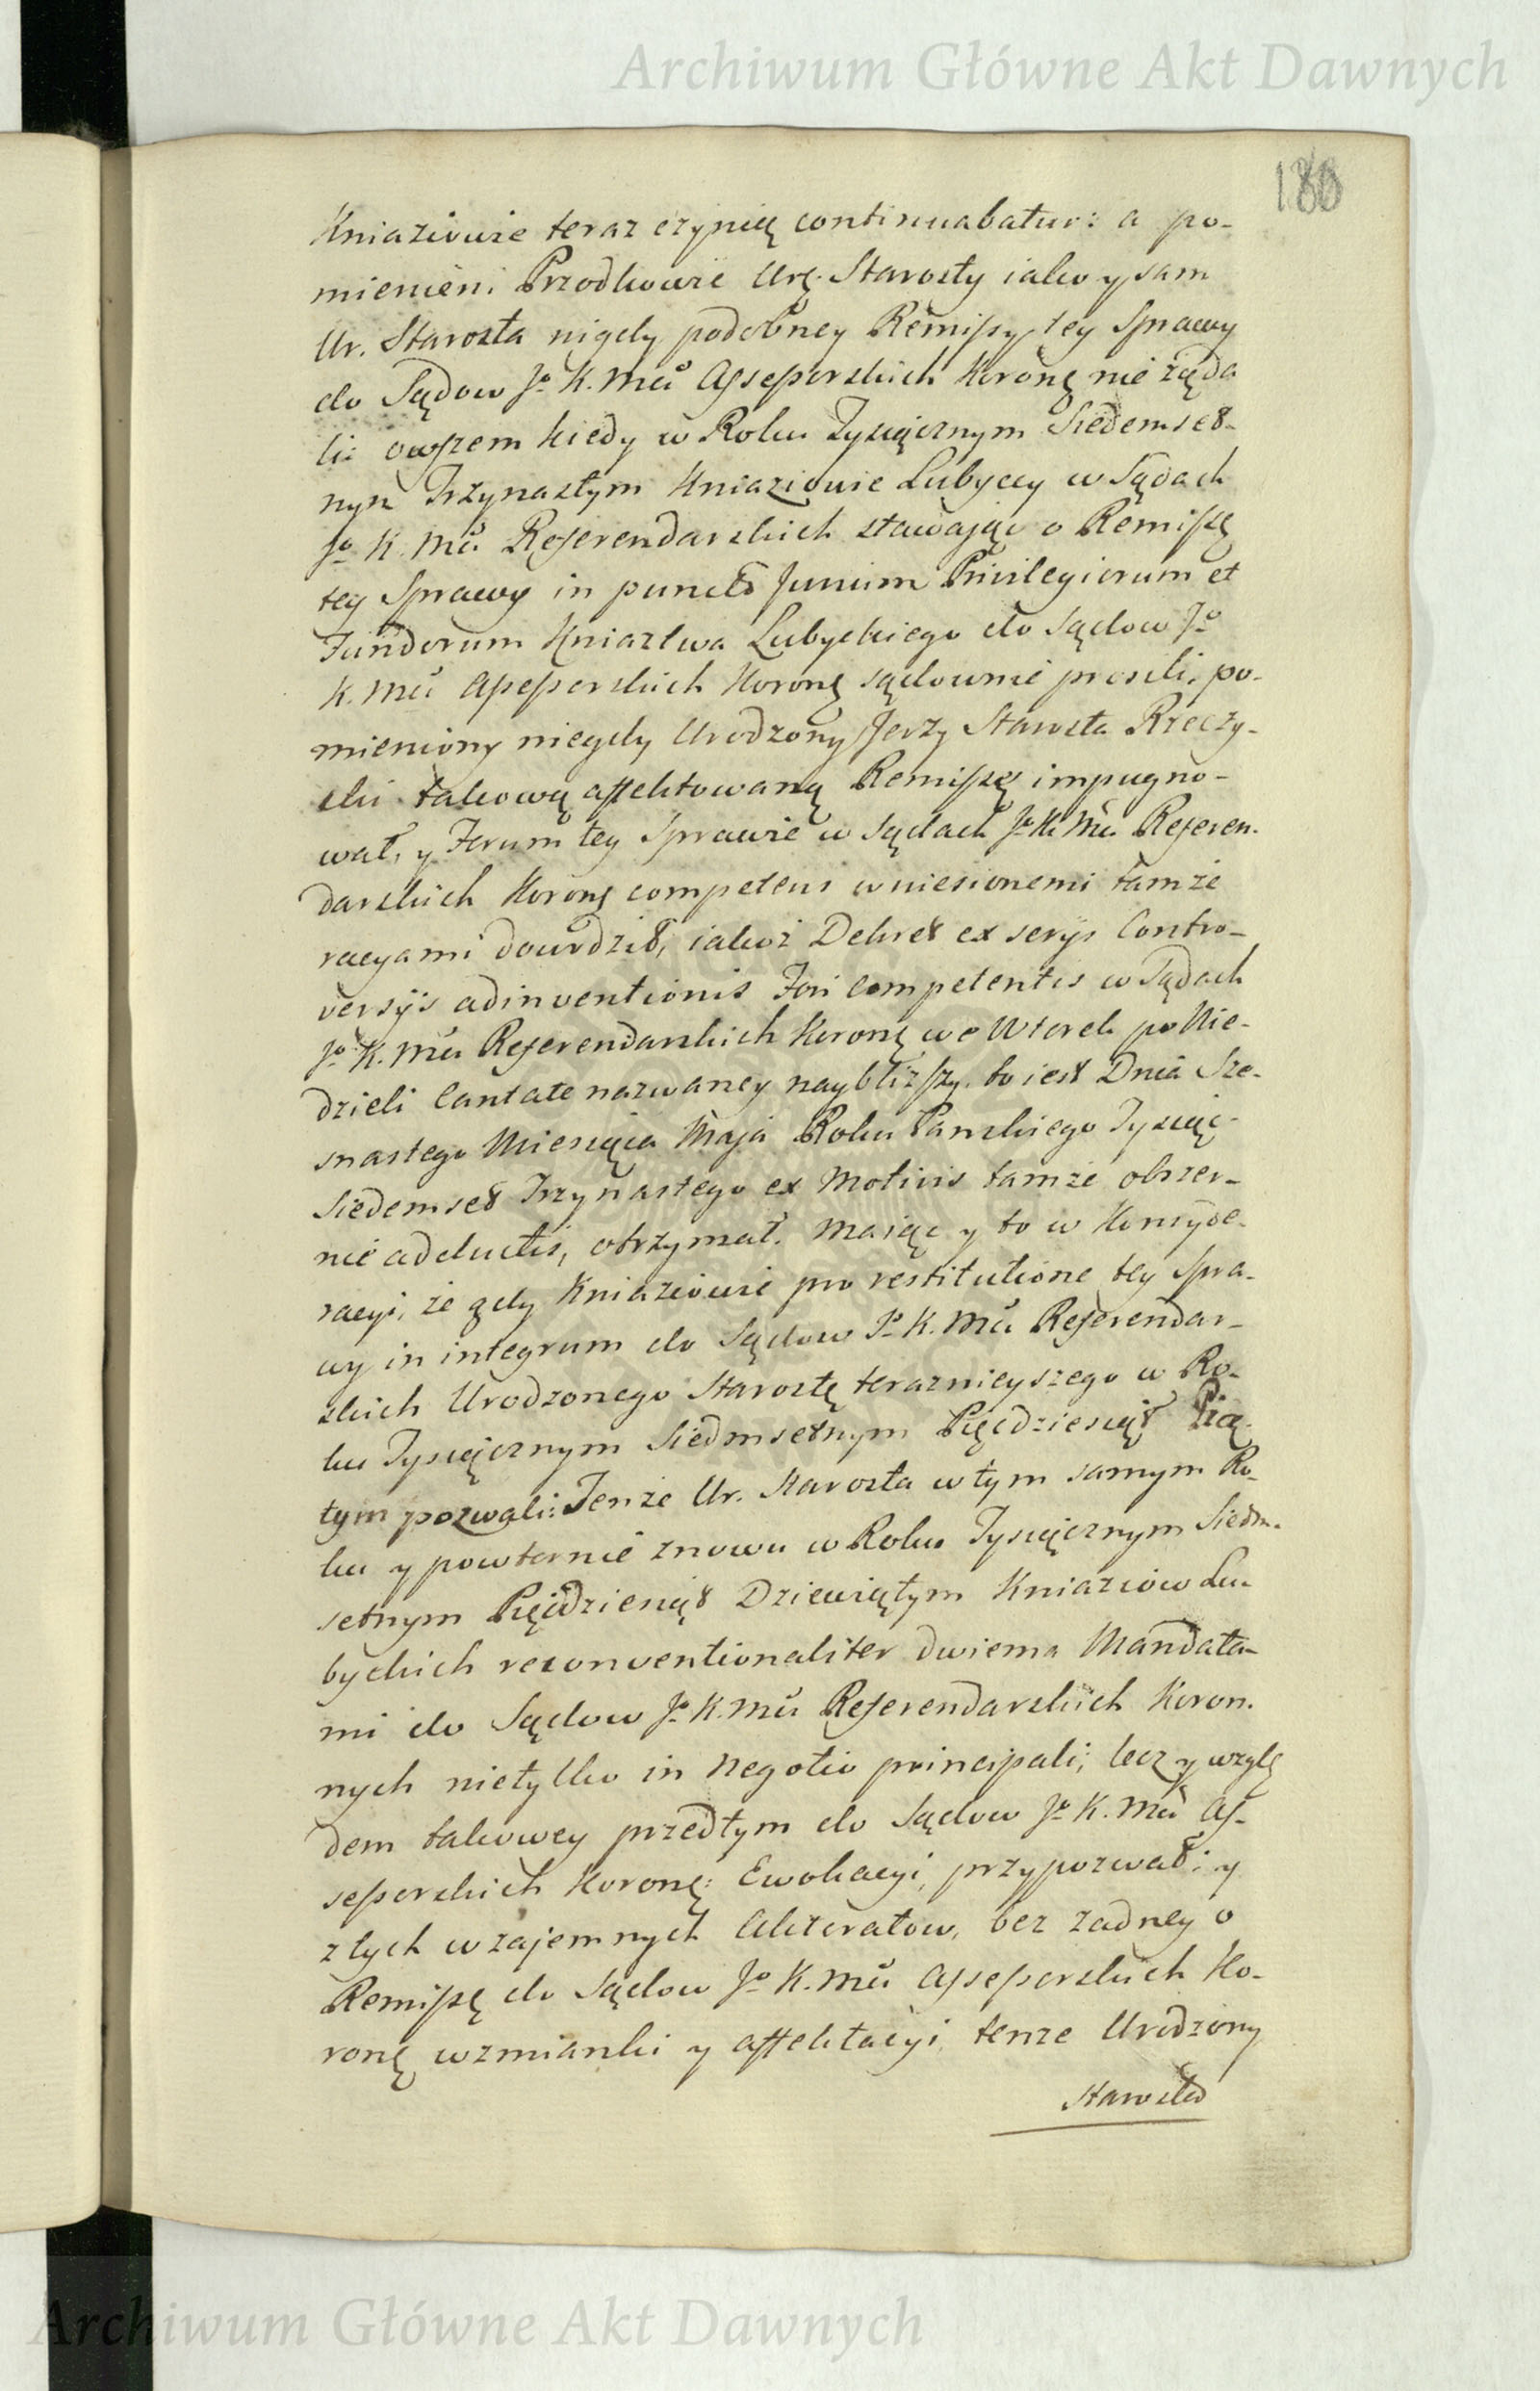 Archiwum Główne Akt Dawnych
180
Kniaziowie teraz czynią continuabatur: a po-
mienieni Przodkowie Urę. Starosty iako y sam
Ur. Starosta nigdy podobney Remissy tey Sprawy
do Sądow Jo K. Mci Assessorskich Koronę nie żąda
li: owszem kiedy w Roku Tysiącznym Siedemset-
nym Trzynastym Kniaziowie Lubyccy w Sądach
Jo K. Mci Referendarskich stawaiąc o Remissę
tey Sprawy in puncto Jurium Privilegiorum et
Fundorum Kniaztwa Lubyckiego do Sądow Jo
K. Mci Assessorskich Koronę sądownie prosili, po-
mieniony niegdy Urodzony Jerzy Starosta Rzeczy-
cki takową affektowaną Remissę impugno-
wał, y Forum tey Sprawie w Sądach Jo K. Mci Referen-
darskich Koronę competens wniesionemi tamże
racyami dowodził, iakoż Dekret ex serijs Contro-
versijs adinventionis Fori Competentis w Sądach
Jo K. Mci Referendarskich Koronę we Wtorek po Nie-
dzieli Cantate nazwaney naybliższy. to iest Dnia Sze-
snastego Miesiąca Maja Roku Panskiego Tysiąc-
Siedemset Trzynastego ex Motivis tamże obszer-
nie adductis, otrzymał. Maiąc y to w Konsyde-
racyi, że gdy Kniaziowie pro restitutione tey Spra-
wy in integrum do Sądow Jo K. Mci Referendar-
skich Urodzonego Starostę teraznieyszego w Ro-
ku Tysiącznym Siedmsetnym Pięćdziesiąt Pią-
tym pozwali: Tenże Ur. Starosta w tym samym Ro-
ku y powtornie znowu w Roku Tysiącznym Siedm-
setnym Pięćdziesiąt Dziewiątym Kniaziow Lu-
byckich reconventionaliter dwiema Mandata-
mi do Sądow Jo K. Mci Referendarskich Koron-
nych nietylko in Negotio principali; lecz y wzglę
dem takowey przedtym do Sądow Jo K. Mci As-
sessorskich Koronę: Ewokacyi, przypozwał: y
z tych wzajemnych Akteratow, bez żadney o
Remissę do Sądow Jo K. Mci Assessorskich Ko-
ronę wzmianki y affektacyi, tenże Urodzony
Starosta
Archiwum Główne Akt Dawnych